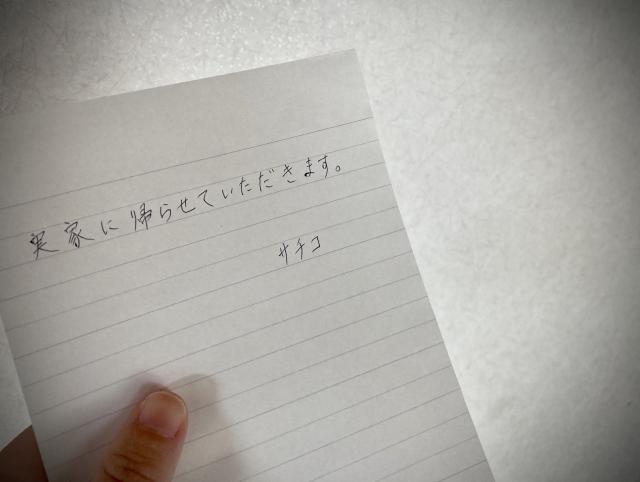 実家に帰らせていただきます。
サチコ